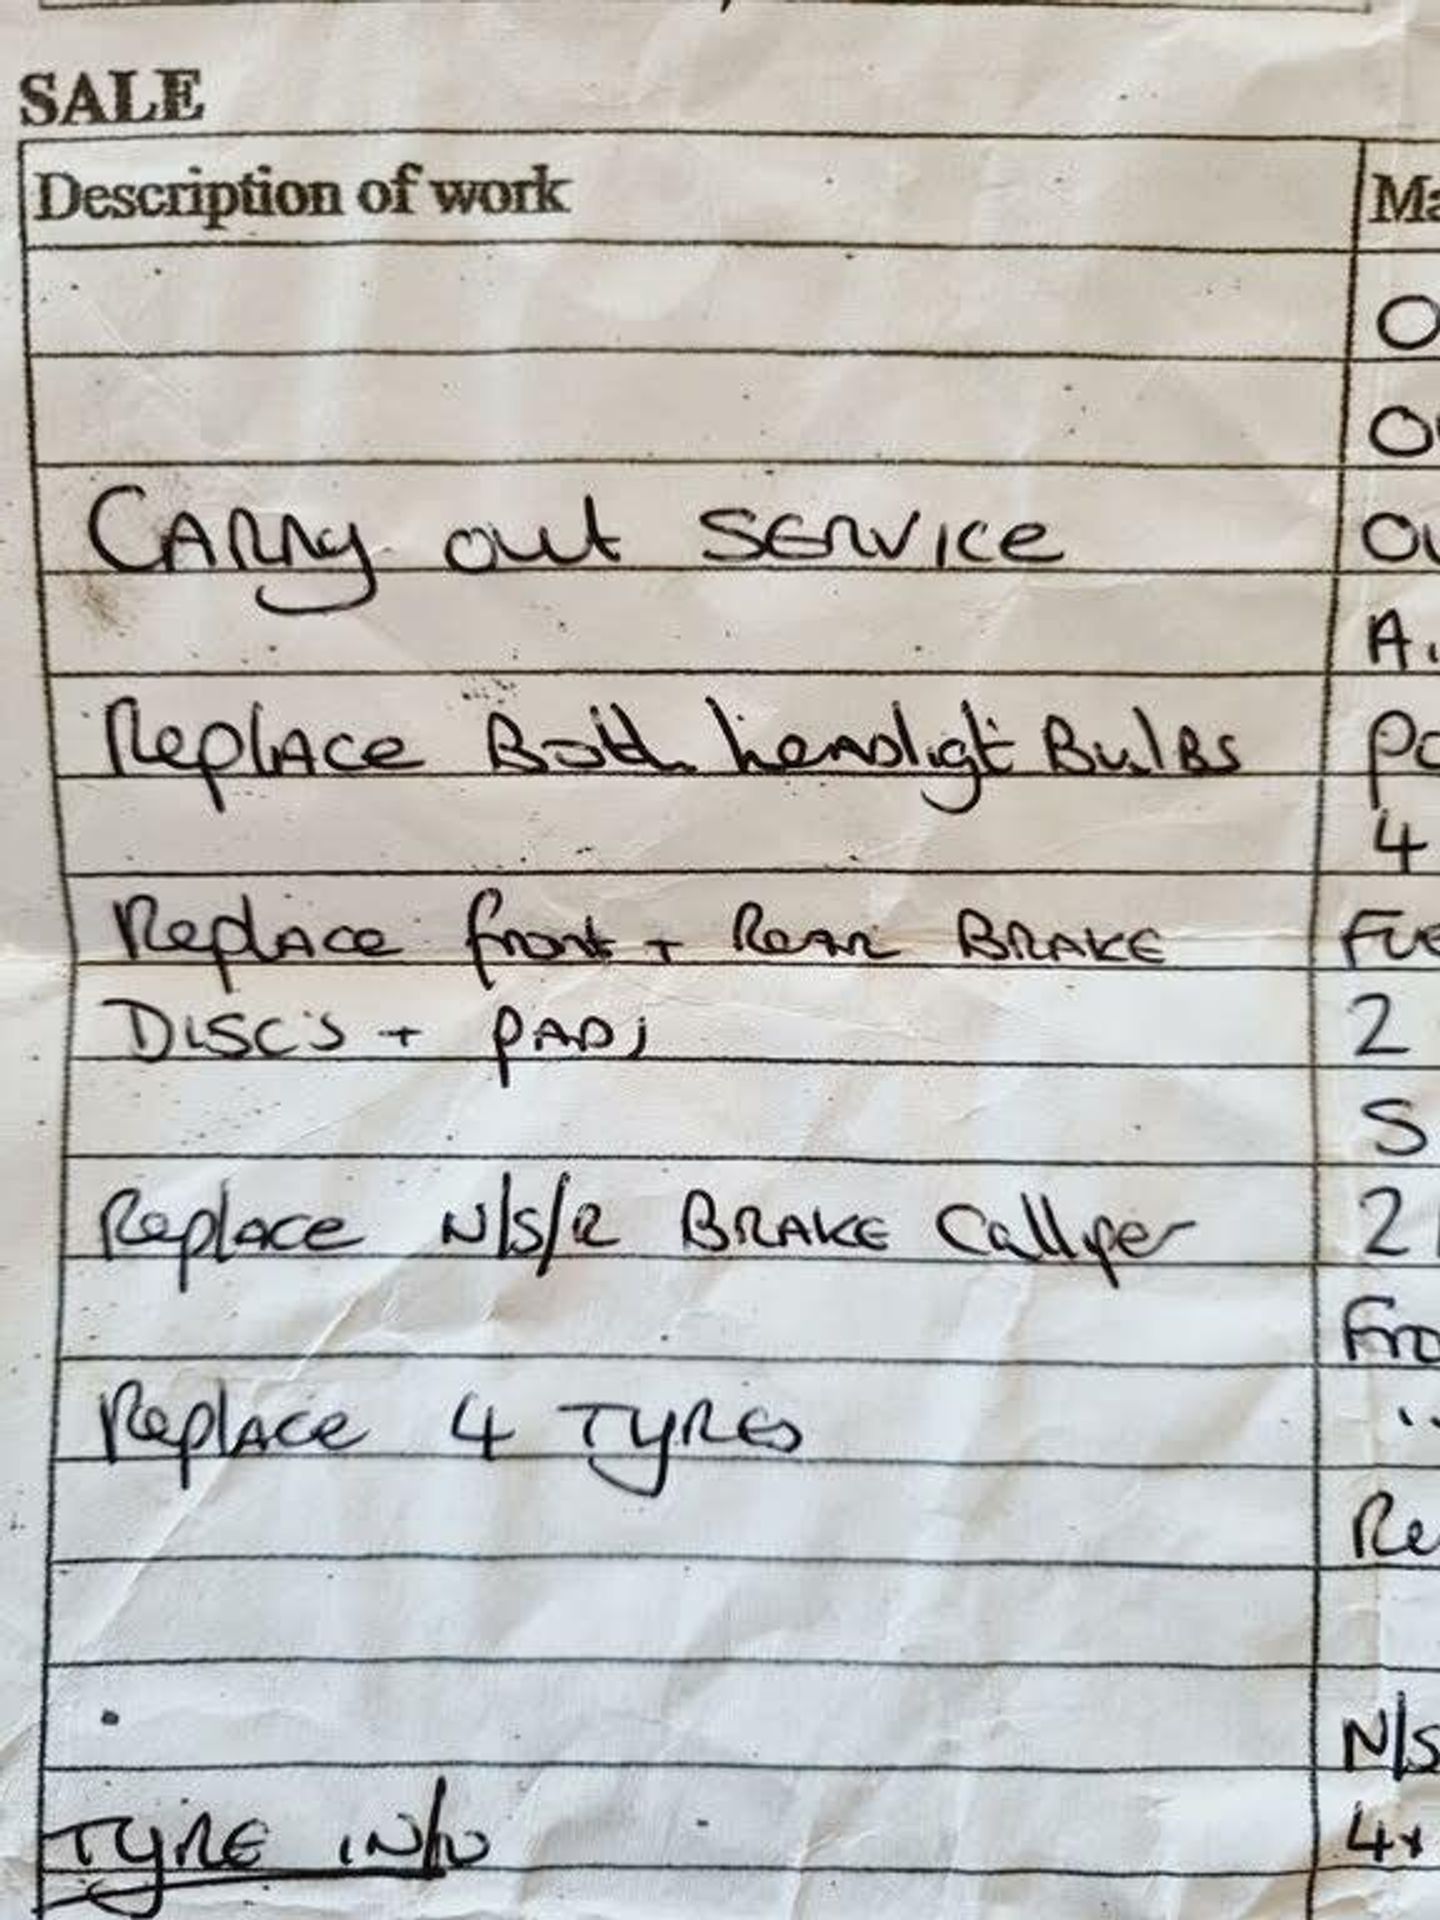 SALE
Description of work Ma
O
CARRy out SERVICe Ou
A.
Replace Both headligt BulBs Po
4
Replace front + Rear BRAKE Fue
DISC'S + PADS 2
S
Replace N/S/R BRAKE Calliper 2
Fro
Replace 4 TYRES "
Re
N/S
TYRE IN/V 4x